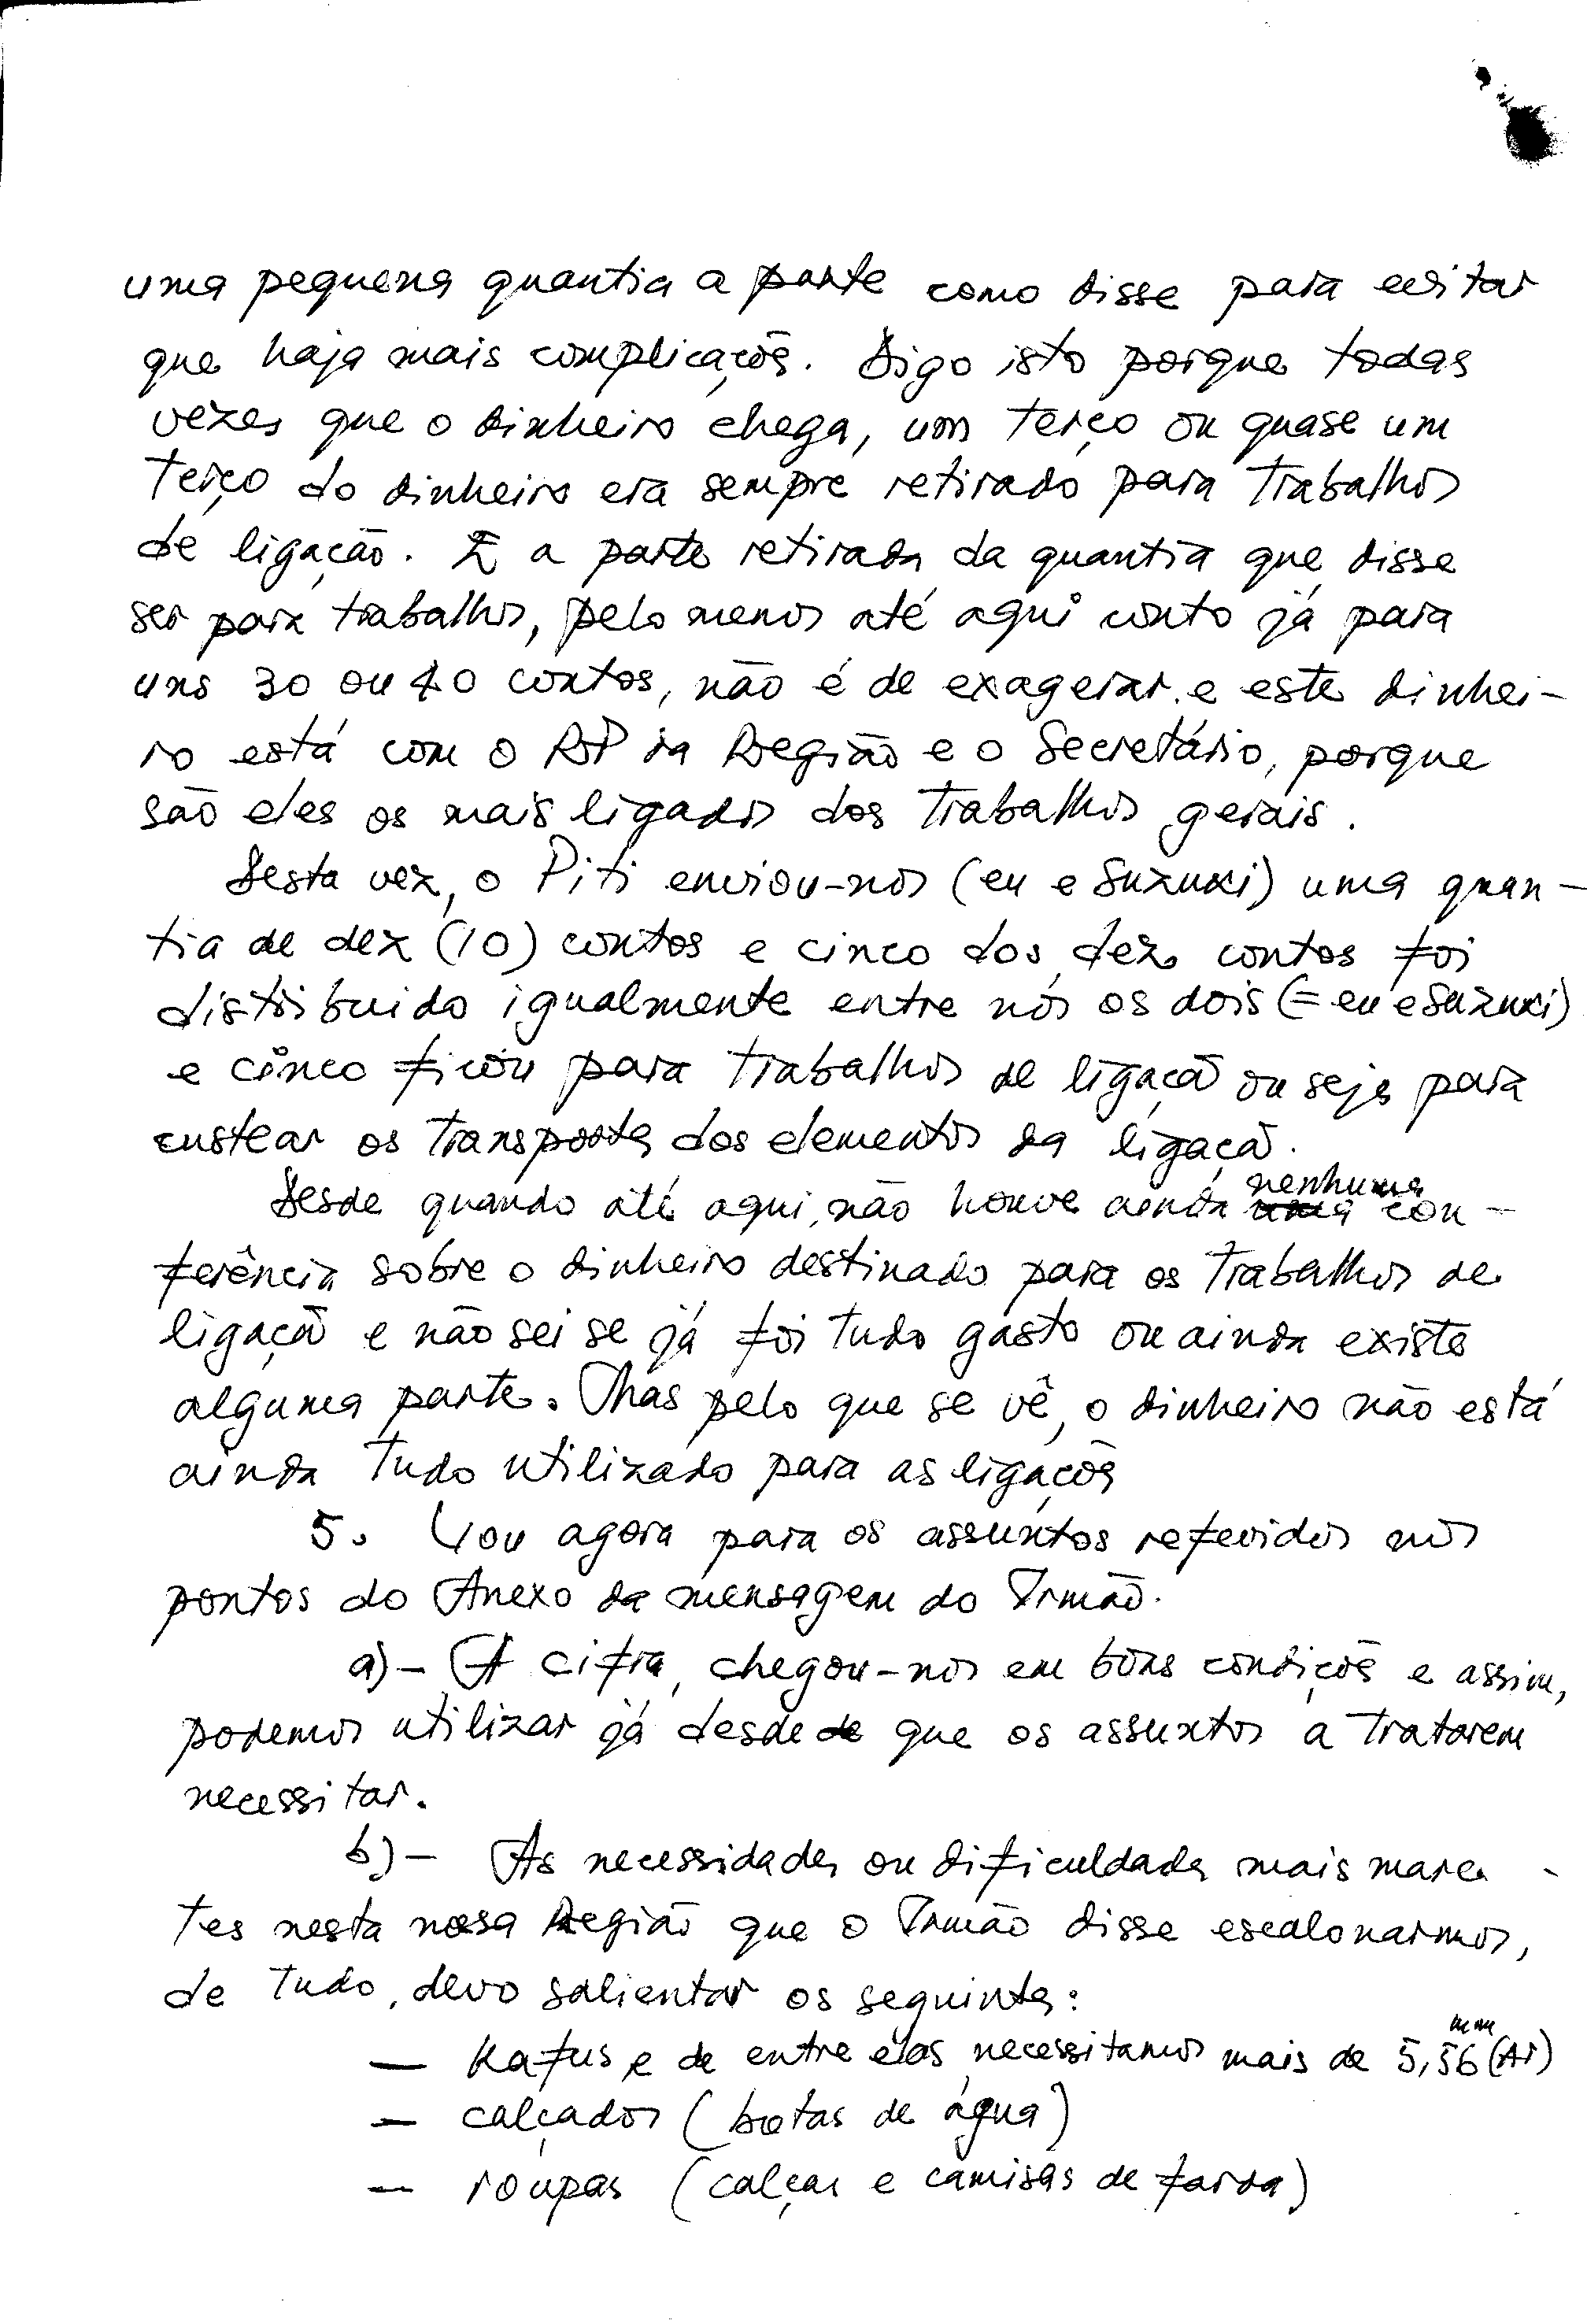 uma pequena quantia a parte como disse para evitar
que haja mais complicações. Digo isto porque todas
vezes que o dinheiro chega, um terço ou quase um
terço do dinheiro era sempre retirado para trabalhos
de ligação. E a parte retirada da quantia que disse
ser para trabalhos, pelo menos até aqui conto já para
uns 30 ou 40 contos, não é de exagerar e este dinhei-
ro está com o RP da Região e o Secretário, porque
são eles os mais ligados dos trabalhos gerais.
Desta vez, o Piti enviou-nos (eu e Suzuki) uma quan-
tia de dez (10) contos e cinco dos dez contos foi
distribuido igualmente entre nós os dois (= eu e Suzuki)
e cinco ficou para trabalhos de ligação ou seja para
custear os transportes dos elementos da ligação.
Desde quando até aqui, não houve ainda nenhuma con-
ferência sobre o dinheiro destinado para os trabalhos de
ligação e não sei se já foi tudo gasto ou ainda existe
alguma parte. Mas pelo que se vê, o dinheiro não está
ainda tudo utilizado para as ligações
5. Vou agora para os assuntos referidos nos
pontos do Anexo da mensagem do Irmão.
a) - A cifra, chegou-nos em boas condições e assim,
podemos utilizar já desde que os assuntos a tratarem
necessitar.
b) - As necessidades ou dificuldades mais marcan-
tes nesta nossa Região que o Irmão disse escalonarmos,
de tudo, devo salientar os seguintes:
— Kafus e de entre elas necessitamos mais de 5,56 mm (Ar)
— calçados (botas de água)
— roupas (calças e camisas de farda)